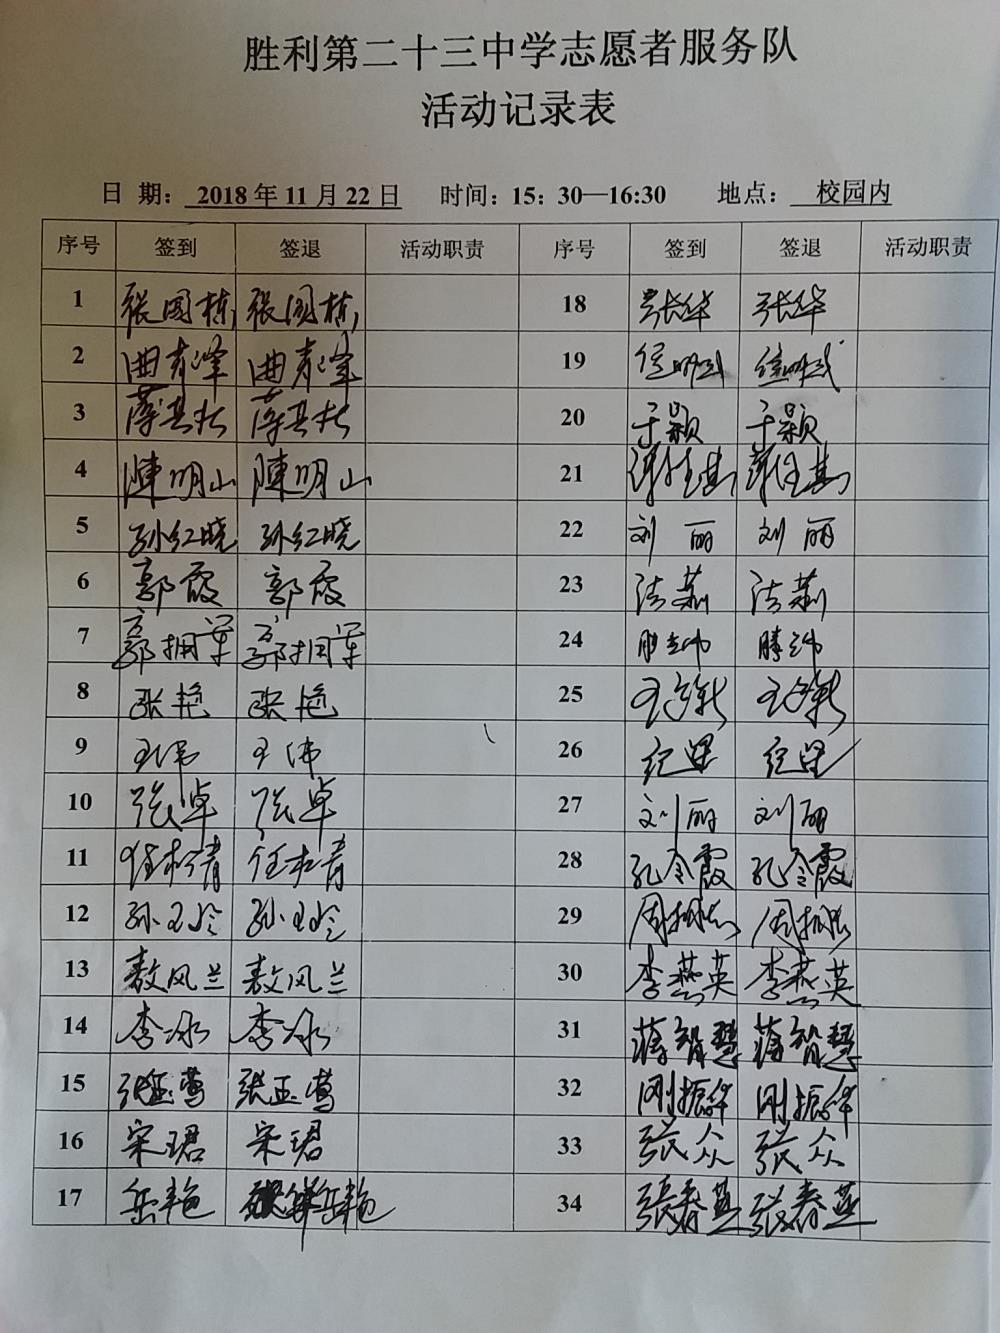 胜利第二十三中学志愿者服务队
活动记录表
日 期： 2018 年 11 月 22 日 时间：15：30—16:30 地点： 校园内
序号 签到 签退 活动职责 序号 签到 签退 活动职责
1 张国栋 张国栋 18 张华 张华
2 曲青峰 曲青峰 19
3 20 于颖 于颖
4 陳明山 陳明山 21
5 孙红晓 孙红晓 22 刘丽 刘丽
6 郭霞 郭霞 23
7 郭拥军 郭拥军 24
8 张艳 张艳 25
9 王伟 王伟 26
10 张卓 张卓 27 刘丽 刘丽
11 28 孔令霞 孔令霞
12 孙玉玲 孙玉玲 29
13 敖风兰 敖风兰 30 李燕英 李燕英
14 李冰 李冰 31 蒋智慧 蒋智慧
15 张亚莺 张亚莺 32 刚振华 刚振华
16 宋珺 宋珺 33 张众 张众
17 岳艳 岳艳 34 张春燕 张春燕